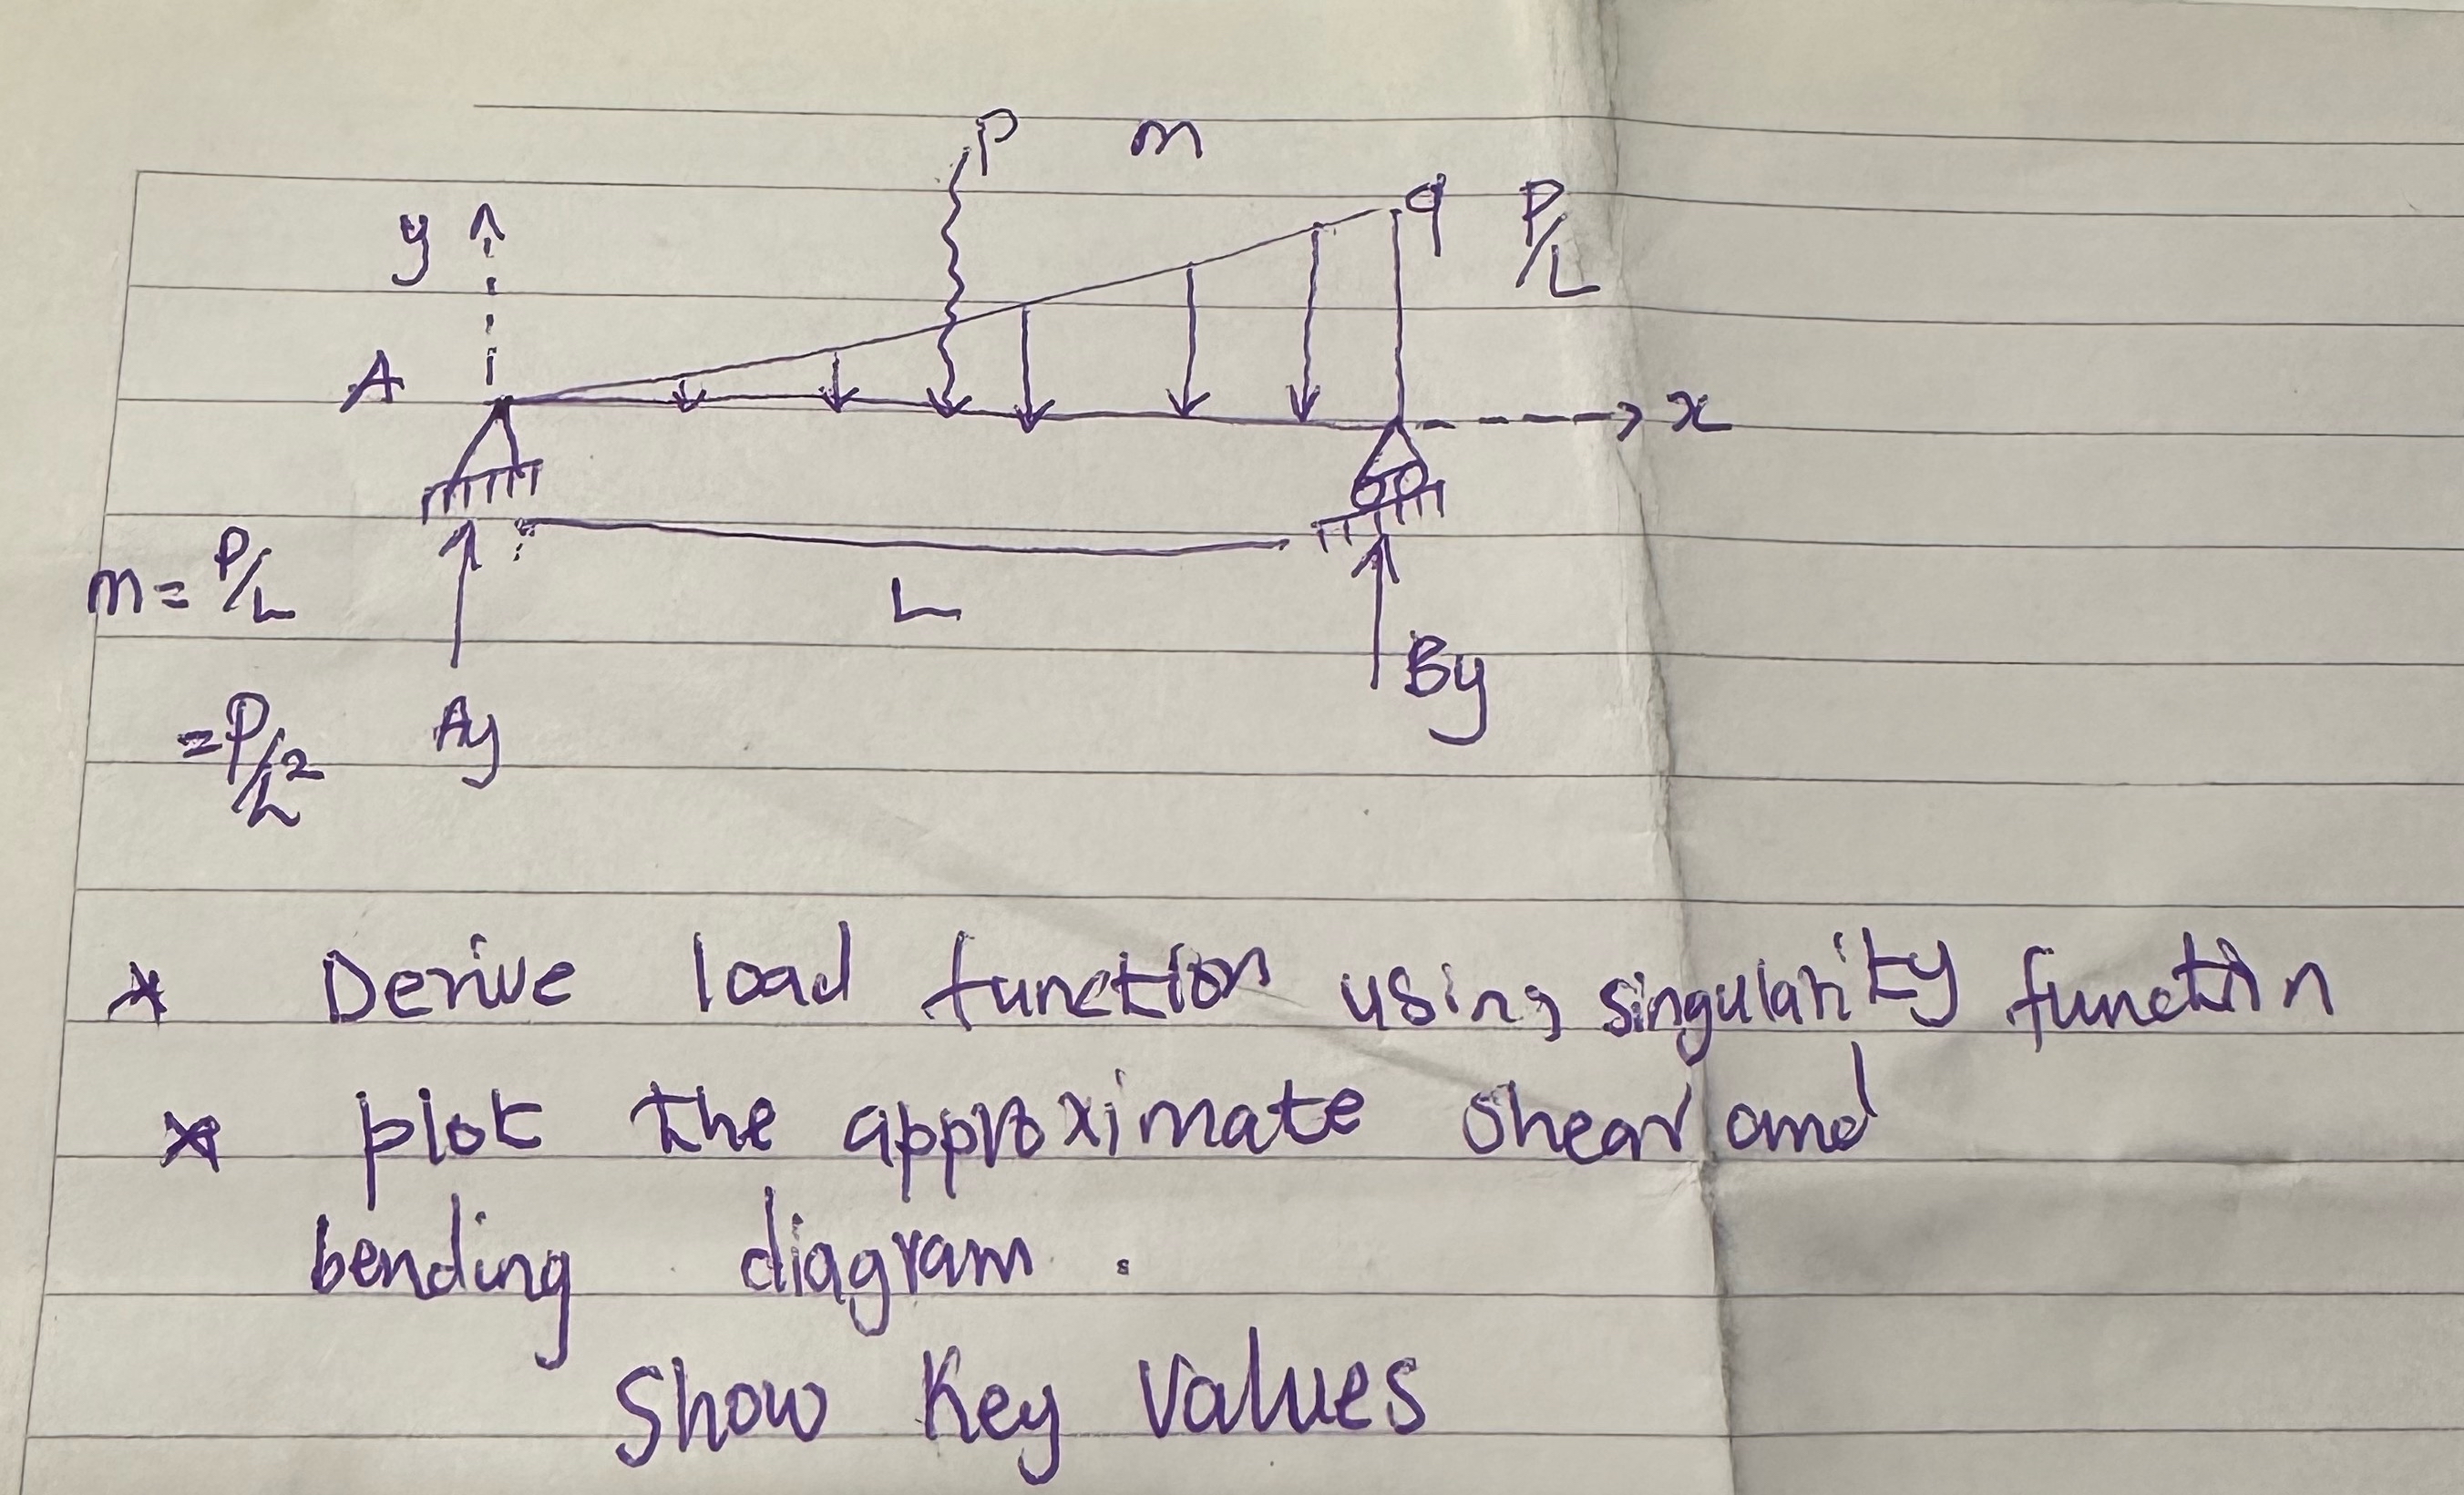 P m
y q P/L
A x
m = P/L
L
By
= P/L² Ay
* Derive load function using singularity function
* plot the approximate shear and
bending diagram .
Show Key Values